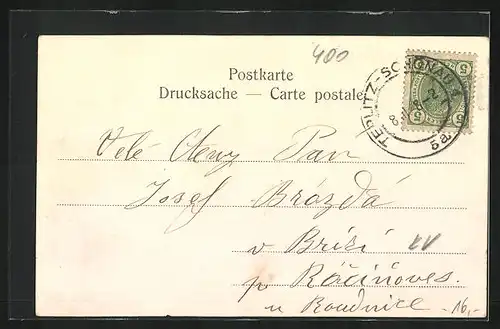 400
Postkarte
Drucksache — Carte postale
TEPLITZ-SCHÖNAU 1
5a
5 5
Velé Ctěný Pan
Josef Brózda
v Bříží
p Ročiňoves
u Roudnice
16,-